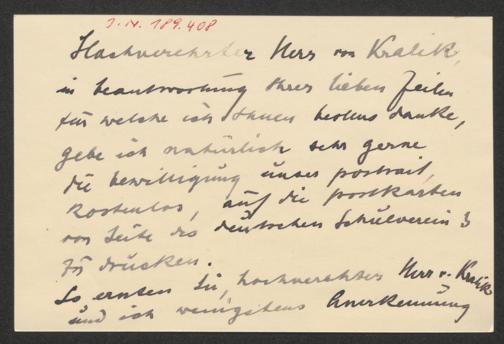 J. N. 189.408
Hochverehrter Herr von Kralik,
in beantwortung Ihrer lieben Zeilen
für welche ich Ihnen bestens danke,
gebe ich natürlich sehr gerne
die bewilligung unser portrait,
kostenlos, auf die postkarten
von Seite des deutschen Schulverein's
zu drucken.
So ernten Sie, hochverehrter Herr v. Kralik
und ich wenigstens Anerkennung